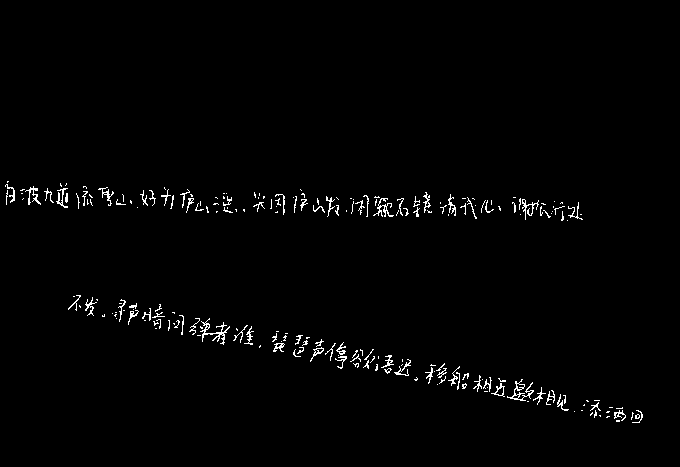 白波九道流雪山、好为庐山谣、兴因庐山发、闲窥石镜清我心、谢公行处
不发。寻声暗问弹者谁，琵琶声停欲语迟。移船相近邀相见，添酒回